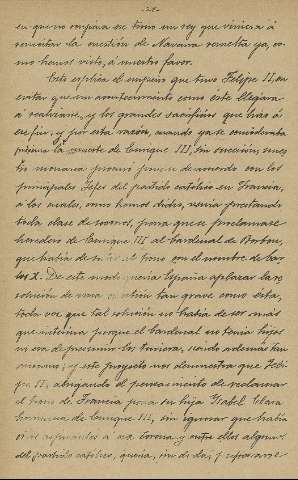 en que no ocupara su trono un rey que viniera á
resucitar la cuestión de Navarra resuelta ya, co-
mo hemos visto, á nuestro favor.
Esto esplica el empeño que tuvo Felipe II, en
evitar que un acontecimiento como éste llegara
á realizarse, y los grandes sacrificios que hizo á
ese fin; y por esta razón, cuando ya se consideraba
próxima la muerte de Enrique III, sin sucesión,
tro monarca procuró ponerse de acuerdo con los
principales Jefes del partido católico en Francia,
á los cuales, como hemos dicho, venía prestando
toda clase de socorros, para que se proclamase
heredero de Enrique III al Cardenal de Borbón,
que había de subir al trono con el nombre de Car-
los X. De este modo quería España aplazar la re-
solución de una cuestión tan grave como ésta,
toda vez que tal solución no había de ser más
que interina porque el Cardenal no tenía hijos
ni era de presumir los tuviera, siendo además tan
anciano; y este proyecto nos demuestra que Feli-
pe II, abrigando el pensamiento de reclamar
el trono de Francia para su hija Isabel Clara
de Enrique III, sin ignorar que había
otros aspirantes á esa corona, y entre ellos alguno
del partido católico, quería, sin duda, y esperarse